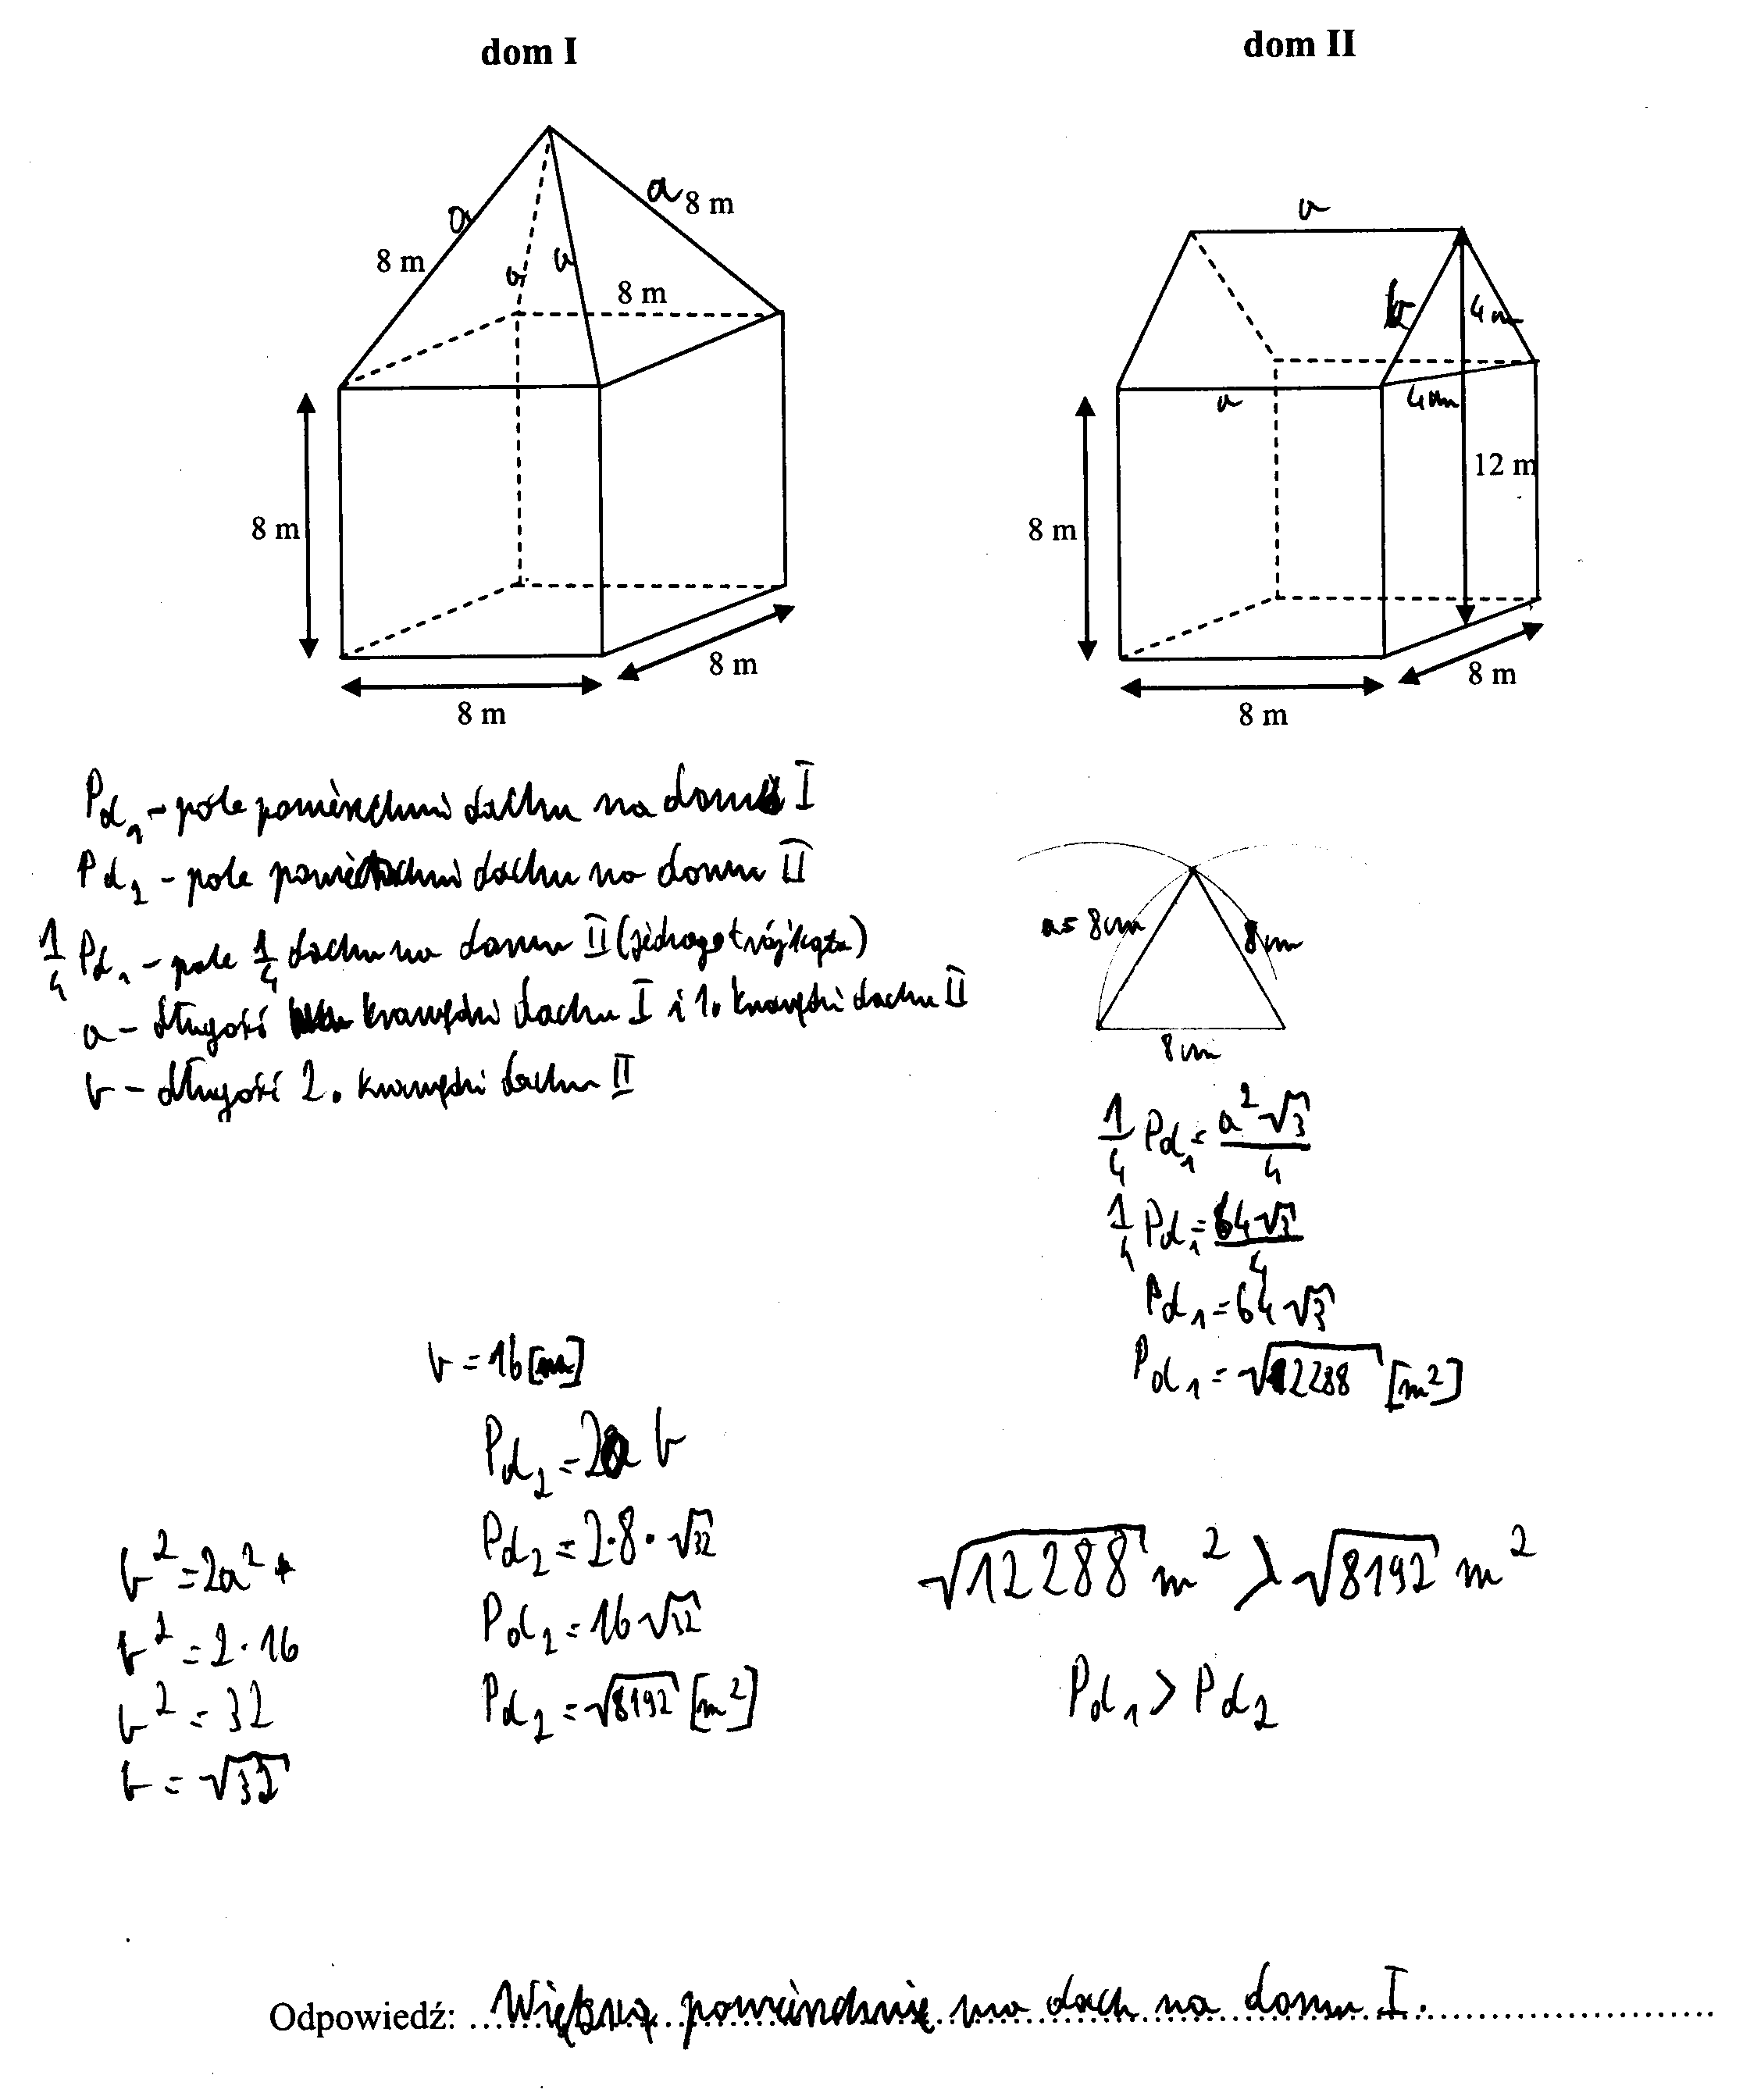 dom I
dom II
a
a 8 m
8 m
a
a
8 m
8 m
8 m
8 m
a
b
4 m
a
4 m
12 m
8 m
8 m
8 m
Pd₁ - pole powierzchni dachu na domu I
Pd₂ - pole powierzchni dachu na domu II
1/4 Pd₁ - pole 1/4 dachu na domu II (jednego trójkąta)
a - długość krawędzi dachu I i 1. krawędzi dachu II
b - długość 2. krawędzi dachu II
a = 8 cm
8 cm
8 cm
1/4 Pd₁ = a²√3/4
1/4 Pd₁ = 64√3/4
Pd₁ = 64√3
Pd₁ = √12288 [m²]
b = 16 [m]
Pd₂ = 2a b
Pd₂ = 2·8·√32
Pd₂ = 16√32
Pd₂ = √8192 [m²]
b² = 2a²
b² = 2·16
b² = 32
b = √32
√12288 m² > √8192 m²
Pd₁ > Pd₂
Odpowiedź: Większą powierzchnię ma dach na domu I.